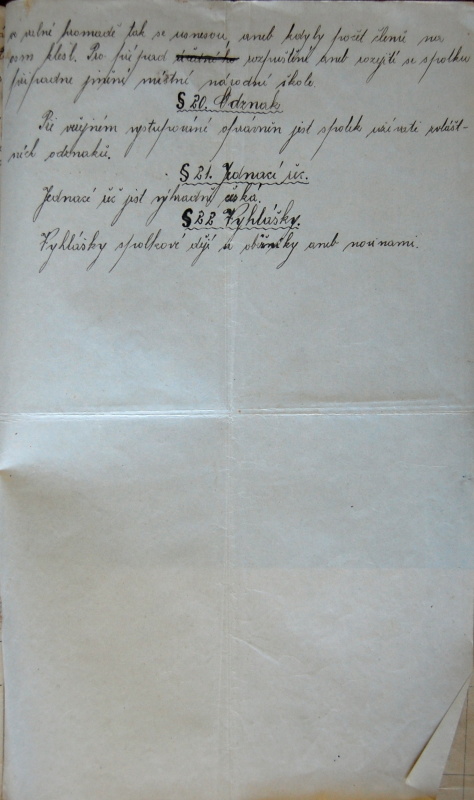 v valné hromadě tak se usnesou, aneb kdyby počet členů na
osm klesl. Pro případ rozpuštění aneb rozejití se spolku
připadne jmění místní národní škole.
§ 20. Odznak.
Při veřejném vystupování oprávněn jest spolek užívati zvlášt-
ních odznaků.
§ 21. Jednací řeč.
Jednací řeč jest výhradně česká.
§ 22 Vyhlášky.
Vyhlášky spolkové dějí se oběžníky aneb novinami.